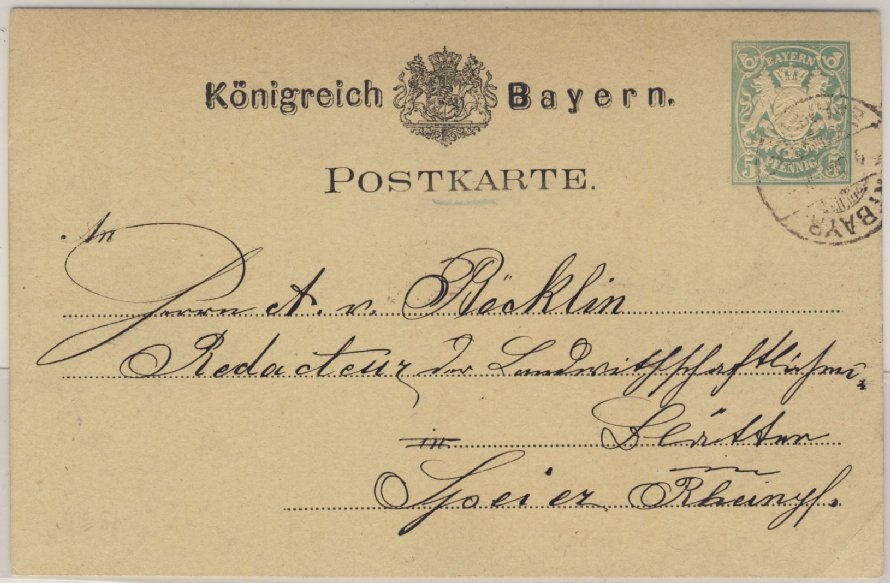 Königreich Bayern.
BAYERN
5 PFENNIG 5
POSTKARTE.
BAYR
An
Herrn A. v. Röcklin
Redacteur der Landwithschaftlichen
in Blätter
in
Speier Rheinpf.